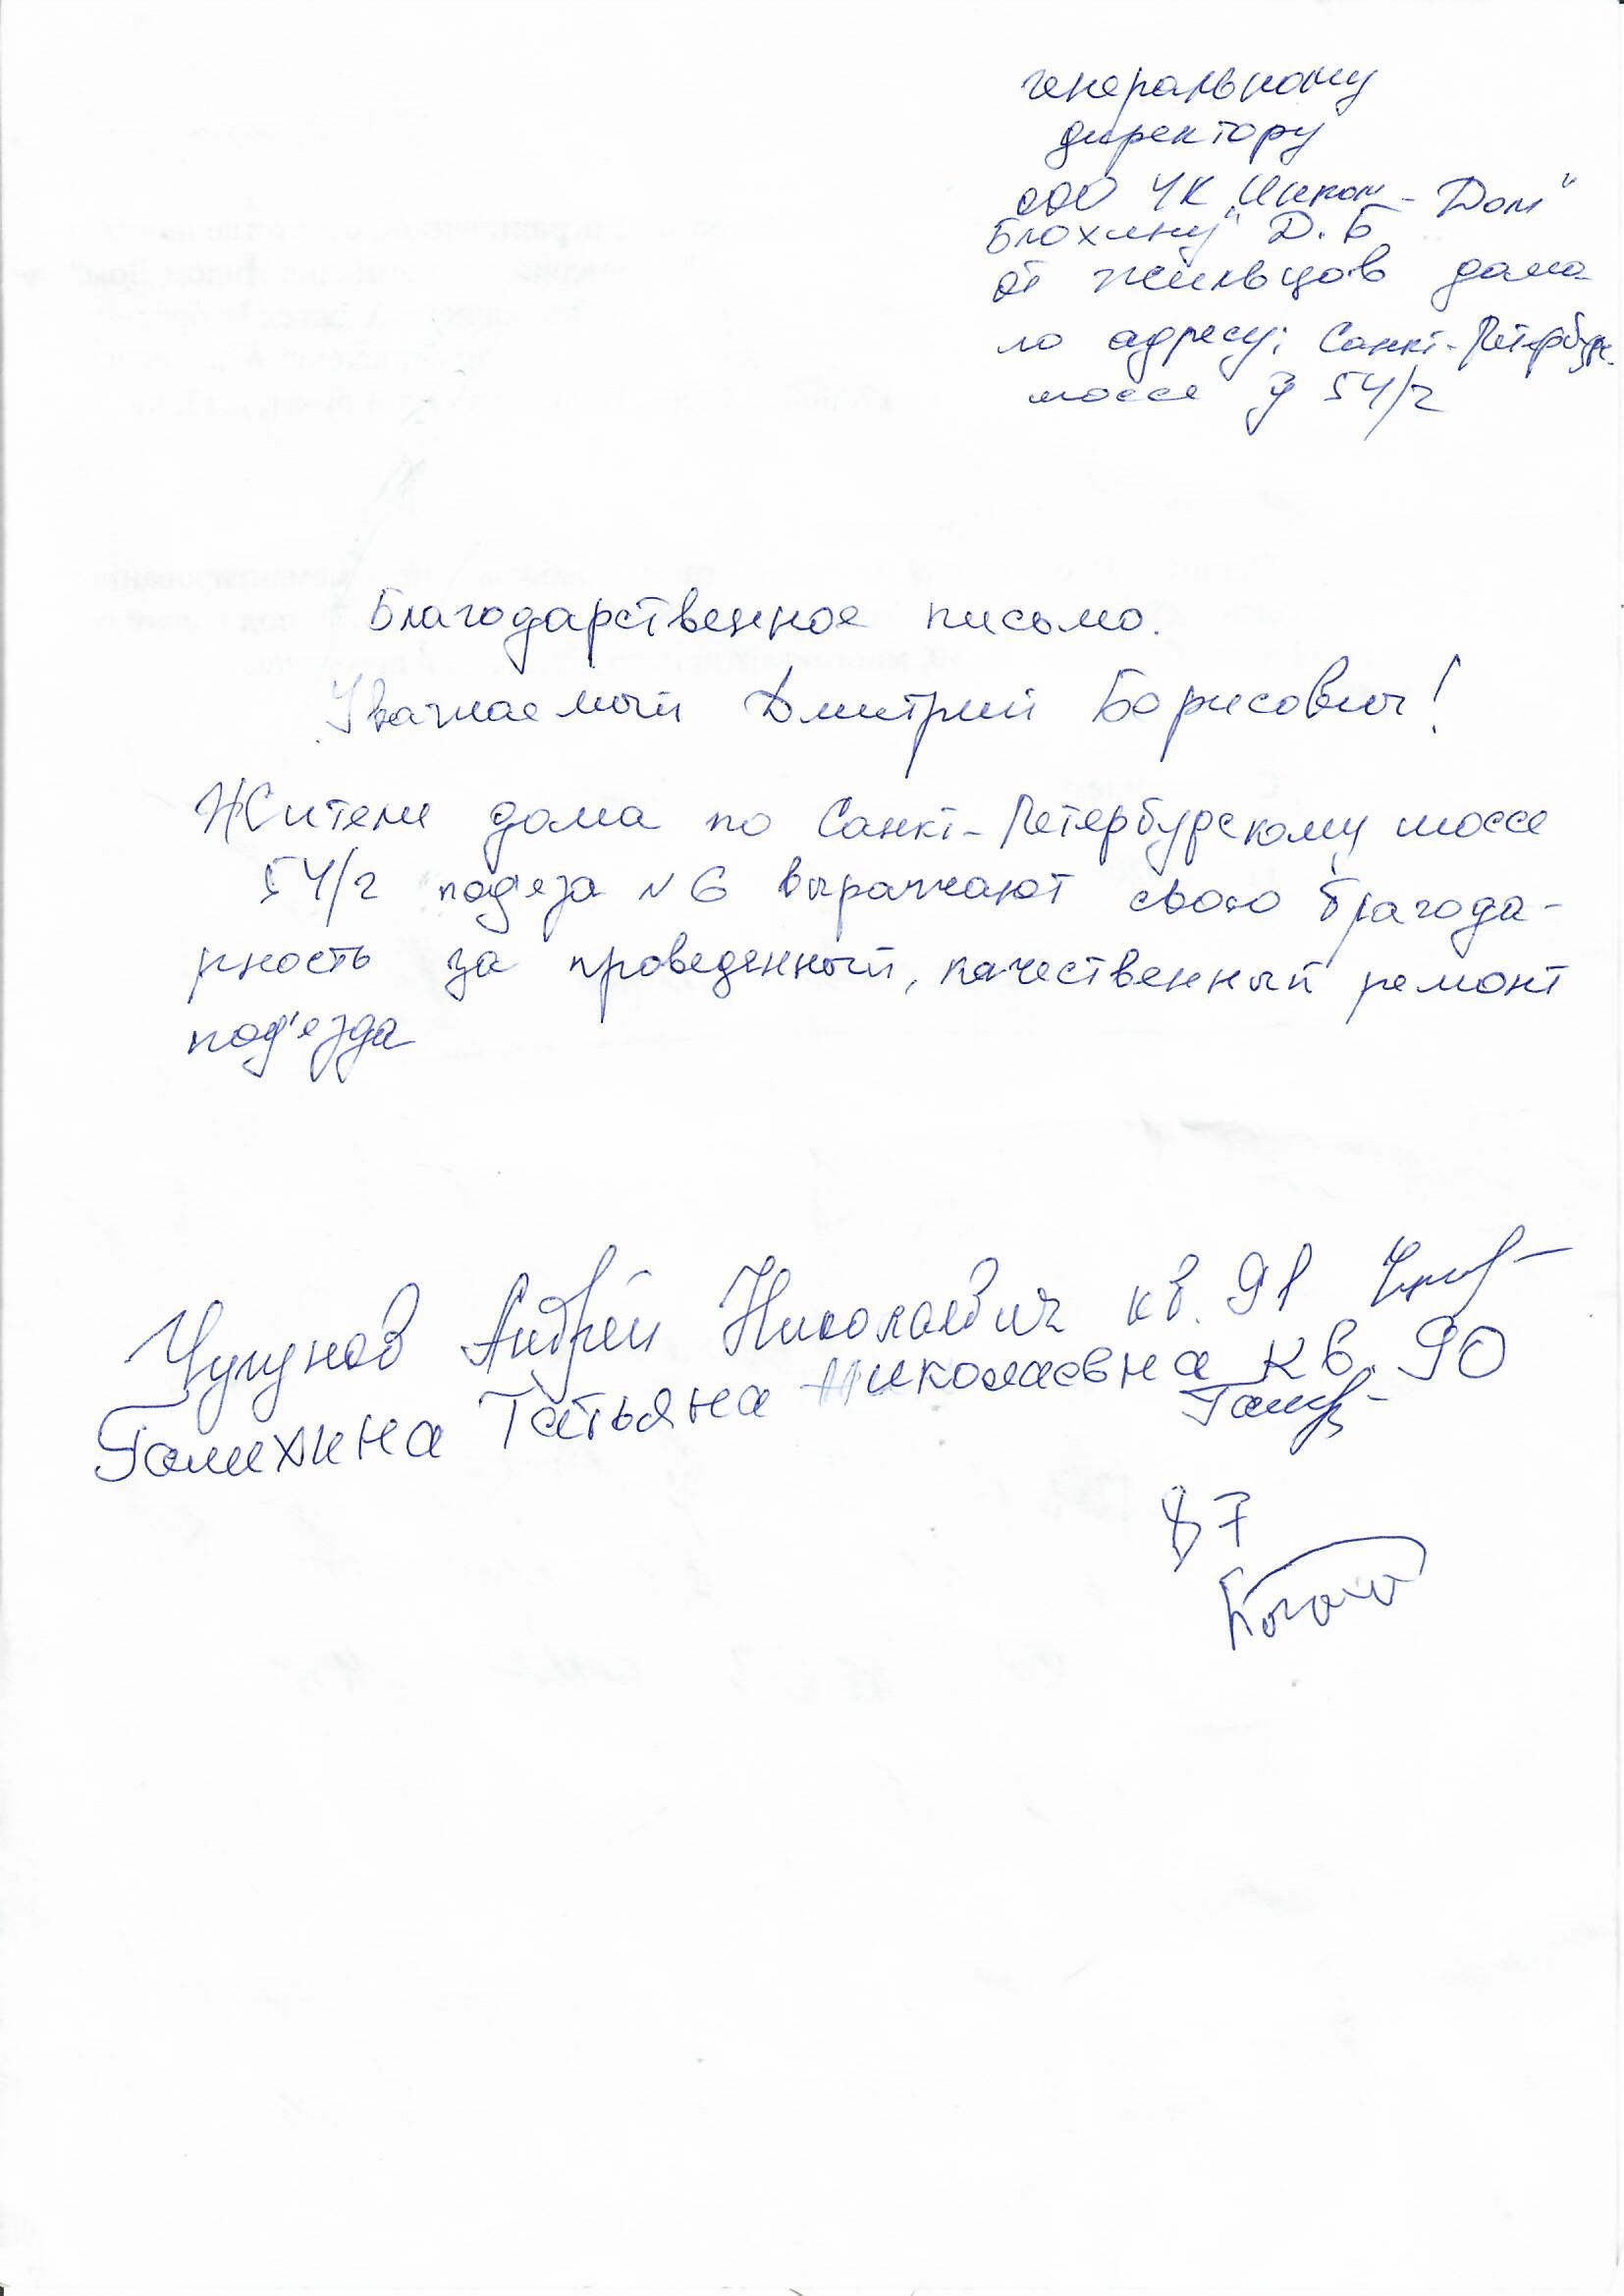 генеральному
директору
ООО УК "Инком-Дом"
Блохину Д.Б
от жильцов дома
по адресу: Санкт-Петербургс.
шоссе д 54/2
Благодарственное письмо.
Уважаемый Дмитрий Борисович!
Жители дома по Санкт-Петербургскому шоссе
54/2 под'еза N6 выражают свою благода-
рность за проведенный, качественный ремонт
под'езда
Чугунов Андрей Николаевич кв. 91
Галихина Татьяна Николаевна кв. 90
87